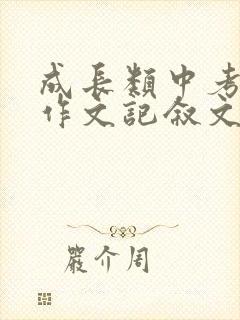 成長類中考
作文記敘文
嚴介周